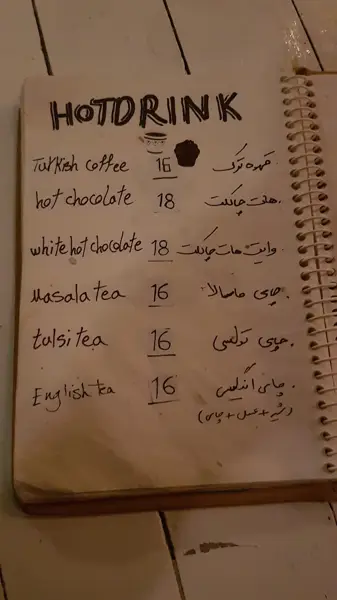 HOTDRINK
Turkish coffee 16 قهوه ترک
hot chocolate 18 هات چاکلت
white hot chocolate 18 وایت هات چاکلت
Masala tea 16 چای ماسالا
tulsi tea 16 چای تولسی
English tea 16 چای انگلیسی
(شیر + عسل + چای)